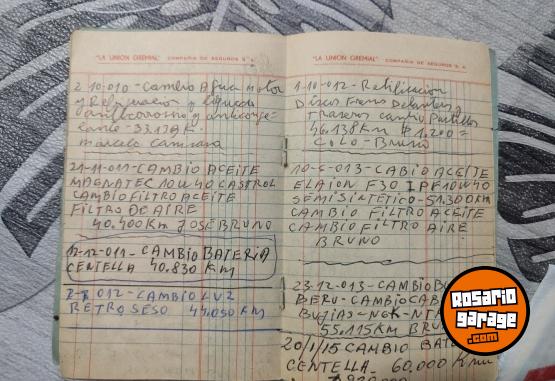 "LA UNION GREMIAL" COMPAÑIA DE SEGUROS S. A.
2-10-010 - Cambio Agua motor
y Refrigeracion y liquido
anticorrosivo y anticonge-
lante - 33.139 K.
marcelo Camisasa
21-11-011 - CAMBIO ACEITE
MAGNATEC 10W40 CASTROL
CAMBIO FILTRO ACEITE
FILTRO DE AIRE
40.400 Km JOSÉ BRUNO
12-12-011 - CAMBIO BATERIA
CENTELLA 40.830 Km
012 - CAMBIO LUZ
RETROSESO KM
"LA UNION GREMIAL" COMPAÑIA DE SEGUROS S. A.
1-10-012 - Retificacion
Discos Freno Delantero y
Traseros cambio Pastillas
46.138 Km $1.200 =
COLO - BRUNO
10-6-013 - CABIO ACEITE
ELAION F30 YPF 10W40
SEMISINTETICO - 51.300 KM
CAMBIO FILTRO ACEITE
CAMBIO FILTRO AIRE
BRUNO
23-12-013 - CAMBIO
CAMBIO
BUJIAS - NGK -
55.115 KM
20/1/15 CAMBIO
CENTELLA - 60.000 Km
ROSARIO
GARAGE
.COM